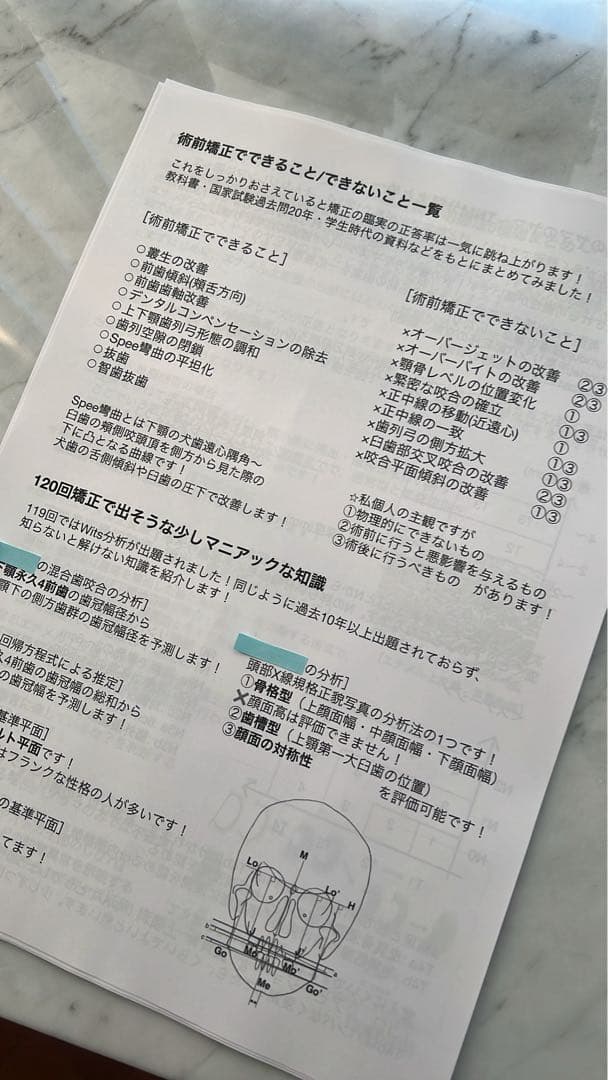 術前矯正でできること/できないこと一覧
これをしっかりおさえていると矯正の臨実の正答率は一気に跳ね上がります！
教科書・国家試験過去問20年・学生時代の資料などをもとにまとめてみました！
［術前矯正でできること］
○叢生の改善
○前歯傾斜(頬舌方向)
○前歯歯軸改善
○デンタルコンペンセーションの除去
○上下顎歯列弓形態の調和
○歯列空隙の閉鎖
○Spee彎曲の平坦化
○抜歯
○智歯抜歯
Spee彎曲とは下顎の犬歯遠心隅角～
臼歯の頬側咬頭頂を側方から見た際の
下に凸となる曲線です！
犬歯の舌側傾斜や臼歯の圧下で改善します！
［術前矯正でできないこと］
×オーバージェットの改善 ②③
×オーバーバイトの改善 ②③
×顎骨レベルの位置変化 ①
×緊密な咬合の確立 ①③
×正中線の移動(近遠心) ①
×正中線の一致 ①③
×歯列弓の側方拡大 ①③
×臼歯部交叉咬合の改善 ②③
×咬合平面傾斜の改善 ①③
☆私個人の主観ですが
①物理的にできないもの
②術前に行うと悪影響を与えるもの
③術後に行うべきもの があります！
120回矯正で出そうな少しマニアックな知識
119回ではWits分析が出題されました！同じように過去10年以上出題されておらず、
知らないと解けない知識を紹介します！
の混合歯咬合の分析］
顎永久4前歯の歯冠幅径から
顎下の側方歯群の歯冠幅径を予測します！
回帰方程式による推定］
4前歯の歯冠幅の総和から
の歯冠幅を予測します！
基準平面］
ルト平面です！
はフランクな性格の人が多いです！
の基準平面］
てます！
の分析］
頭部X線規格正貌写真の分析法の1つです！
①骨格型（上顔面幅・中顔面幅・下顔面幅）
×顔面高は評価できません！
②歯槽型（上顎第一大臼歯の位置）
③顔面の対称性
を評価可能です！
M
Lo
Lo'
H
Mo
Mo'
Go
Go'
Me